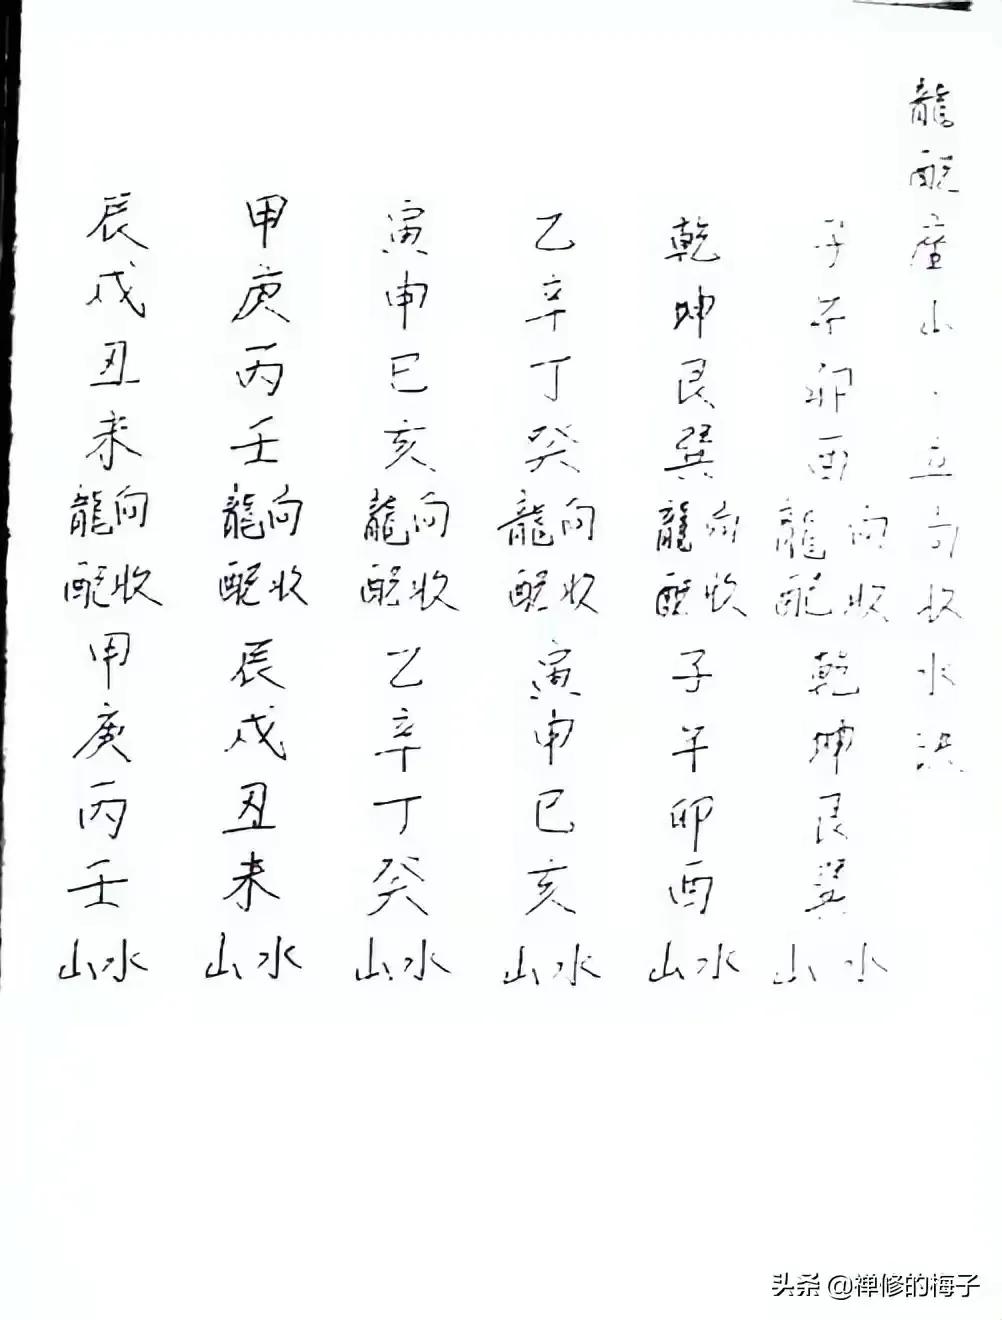 龍配座山、立向收水法
子午卯酉龍向配收乾坤艮巽山水
乾坤艮巽龍向配收子午卯酉山水
乙辛丁癸龍向配收寅申巳亥山水
寅申巳亥龍向配收乙辛丁癸山水
甲庚丙壬龍向配收辰戌丑未山水
辰戌丑未龍向配收甲庚丙壬山水
头条 @禅修的梅子